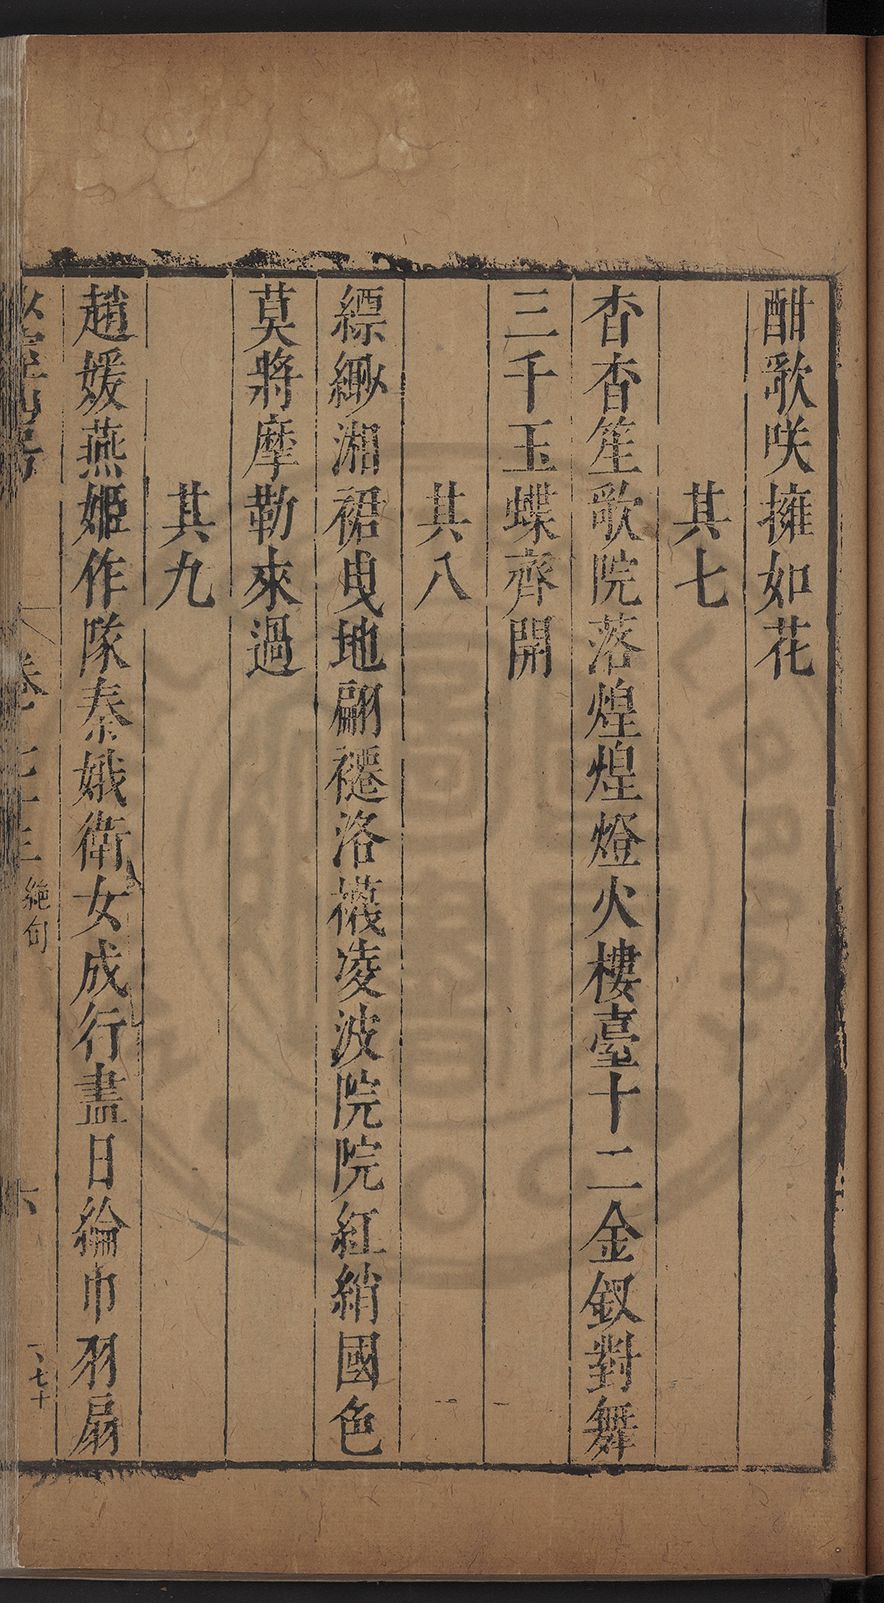 酣歌咲擁如花
其七
杳杳笙歌院落煌煌燈火樓臺十二金釵對舞
三千玉蝶齊開
其八
縹緲湘裙曳地翩褼洛襪凌波院院紅綃國色
莫將摩勒來過
其九
趙媛燕姬作隊秦娥衛女成行盡日綸巾羽扇
絶句
六